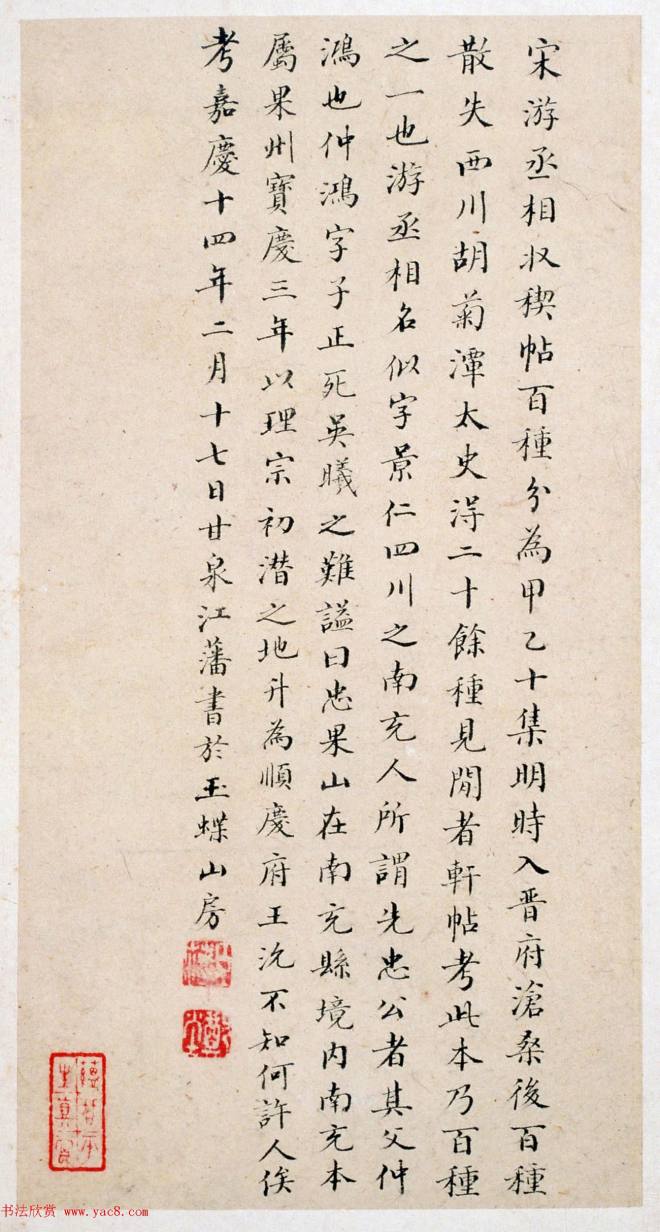 宋游丞相收稧帖百種分為甲乙十集明時入晋府滄桑後百種
散失西川胡菊潭太史淂二十餘種見閒者軒帖考此本乃百種
之一也游丞相名似字景仁四川之南充人所謂先忠公者其父仲
鴻也仲鴻字子正死吴曦之難謚曰忠果山在南充縣境内南充本
屬果州寶慶三年以理宗初潜之地升為順慶府王沇不知何許人俟
考嘉慶十四年二月十七日甘泉江藩書於玉蝶山房
书法欣赏 www.yac8.com